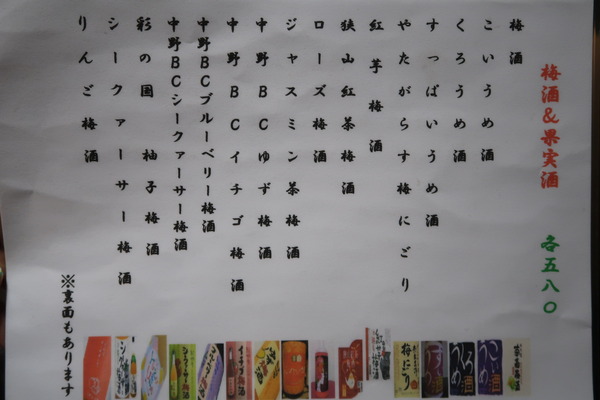 梅酒&果実酒 各五八〇
梅酒
こいうめ酒
くろうめ酒
すっぱいうめ酒
やたがらす梅にごり
紅芋梅酒
狭山紅茶梅酒
ローズ梅酒
ジャスミン茶梅酒
中野BCゆず梅酒
中野BCイチゴ梅酒
中野BCブルーベリー梅酒
中野BCシークァーサー梅酒
彩の国 柚子梅酒
シークァーサー梅酒
りんご梅酒
※裏面もあります